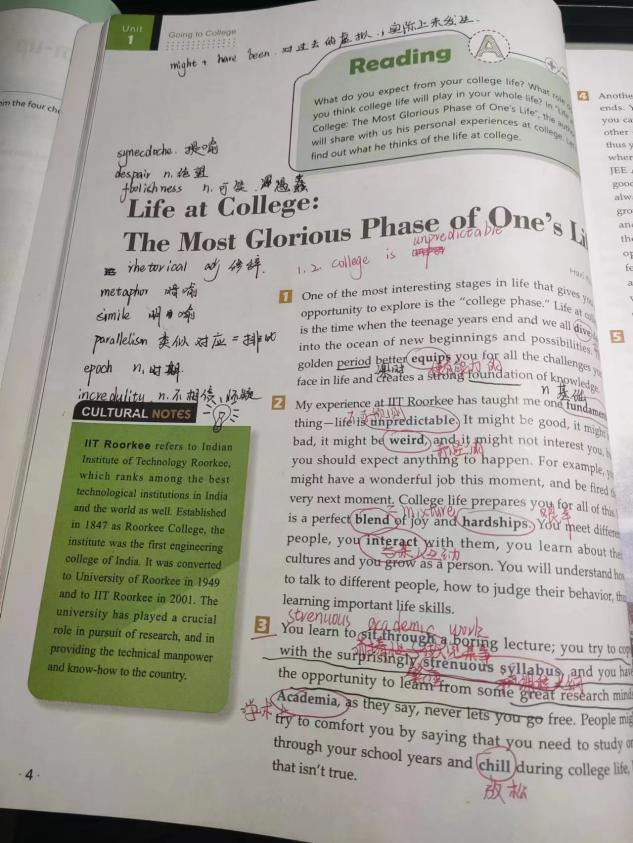 Unit
1
Going to College
might + have been. 对过去的虚拟, 实际上未发生.
Reading
A
What do you expect from your college life? What role
you think college life will play in your whole life? In "Life
College: The Most Glorious Phase of One's Life", the
will share with us his personal experiences at college.
find out what he thinks of the life at college.
synecdoche. 提喻
despair n. 绝望
foolishness n. 愚蠢
Life at College:
The Most Glorious Phase of One's Li
rhetorical adj 修辞.
1, 2. College is unpredictable
metaphor 暗喻
simile 明喻
parallelism 类似 对应 = 排比
epoch n. 时期.
incredulity n. 不相信, 怀疑
CULTURAL NOTES
IIT Roorkee refers to Indian
Institute of Technology Roorkee,
which ranks among the best
technological institutions in India
and the world as well. Established
in 1847 as Roorkee College, the
institute was the first engineering
college of India. It was converted
to University of Roorkee in 1949
and to IIT Roorkee in 2001. The
university has played a crucial
role in pursuit of research, and in
providing the technical manpower
and know-how to the country.
1 One of the most interesting stages in life that gives you
opportunity to explore is the "college phase." Life at
is the time when the teenage years end and we all dive
into the ocean of new beginnings and possibilities.
golden period better equips you for all the challenges
face in life and creates a strong foundation of knowledge.
n 基础
2 My experience at IIT Roorkee has taught me one fundamen
thing—life is unpredictable. It might be good, it might
bad, it might be weird, and it might not interest you,
you should expect anything to happen. For example,
might have a wonderful job this moment, and be fired
very next moment. College life prepares you for all of this.
mixture
is a perfect blend of joy and hardships. You meet differe
people, you interact with them, you learn about the
cultures and you grow as a person. You will understand how
to talk to different people, how to judge their behavior,
learning important life skills.
strenuous academic work
3 You learn to sit through a boring lecture; you try to cop
with the surprisingly strenuous syllabus, and you have
the opportunity to learn from some great research mind
学术
Academia, as they say, never lets you go free. People mig
try to comfort you by saying that you need to study
through your school years and chill during college life,
that isn't true.
放松
·4·
om the four ch
4 Anothe
ends. Y
you ca
other
thus y
wher
JEE
good
alw
gro
an
th
5